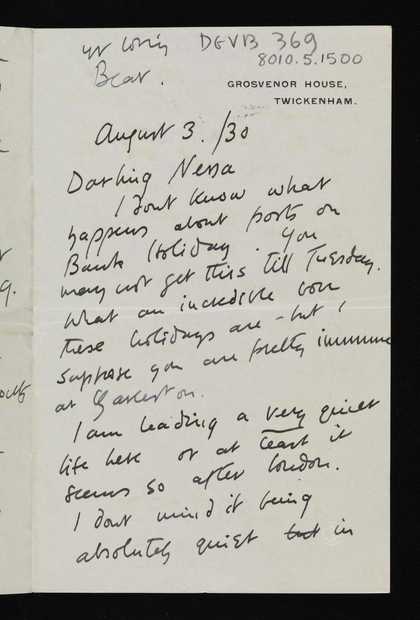 yr loving DGVB 369
8010.5.1500
Bear.
GROSVENOR HOUSE,
TWICKENHAM.
August 3. /30
Darling Nessa
I dont know what
happens about posts on
Bank Holiday. You
may not get this till Tuesday.
What an incredible bore
these holidays are - but I
suppose you are pretty immune
at Charleston.
I am leading a very quiet
life here or at least it
seems so after London.
I dont mind it being
absolutely quiet but in